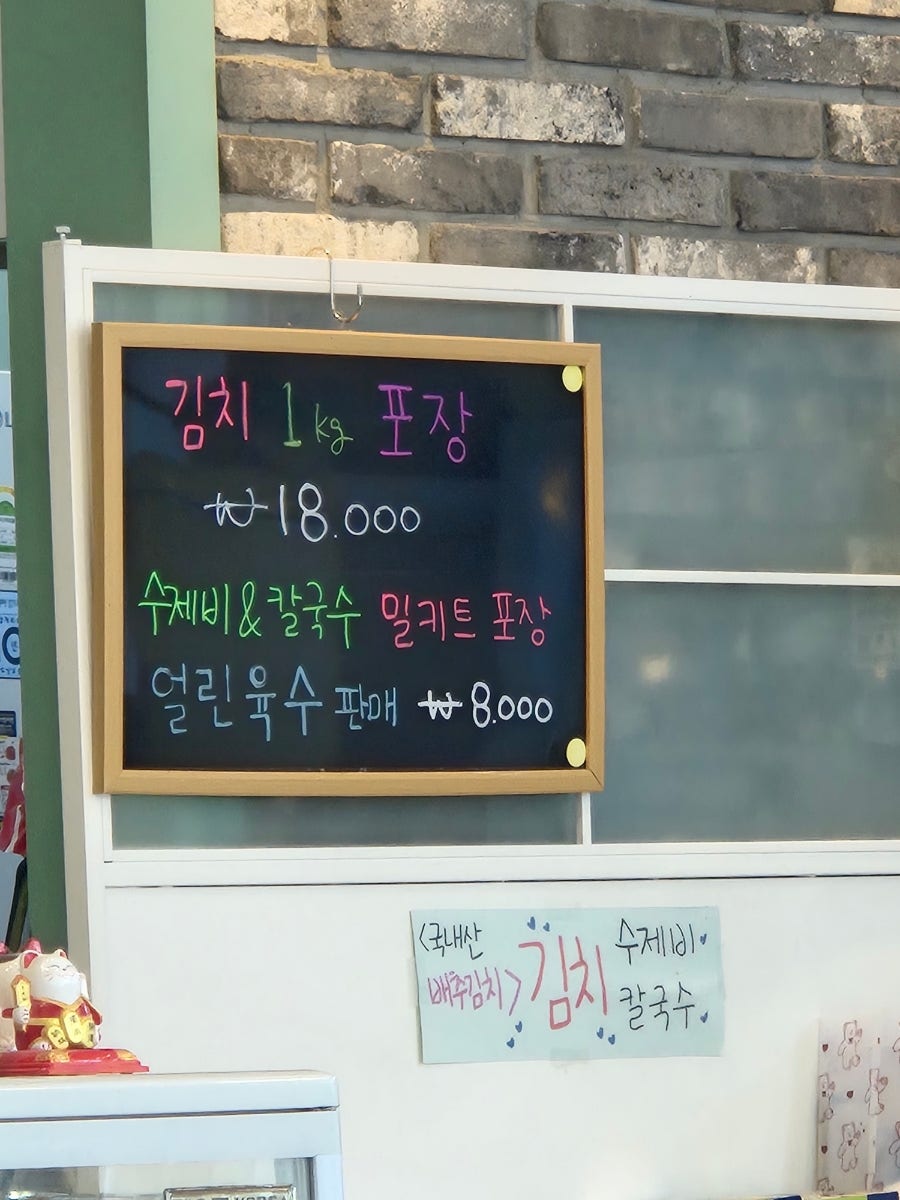 김치 1kg 포장
₩18.000
수제비&칼국수 밀키트 포장
얼린육수 판매 ₩8.000
<국내산
배추김치>
김치
수제비
칼국수